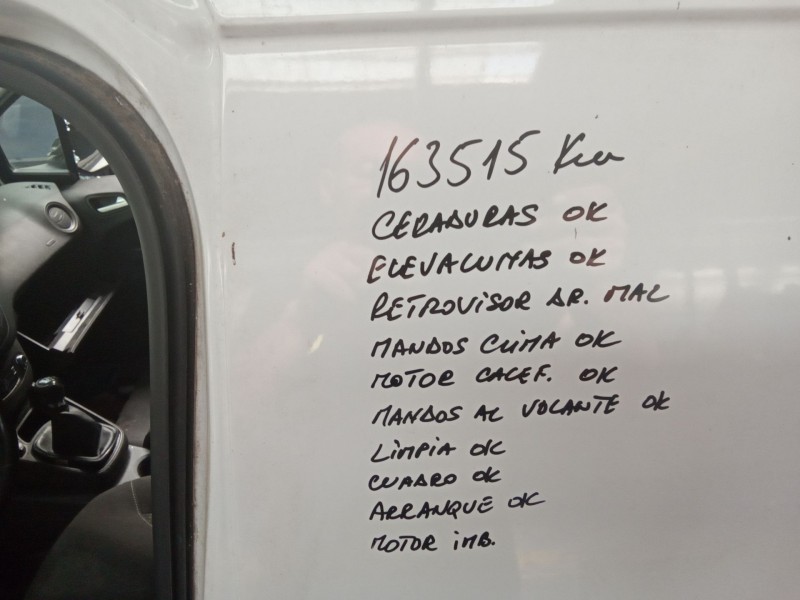 163515 Km
CERADURAS OK
ELEVALUNAS OK
RETROVISOR DR. MAL
MANDOS CLIMA OK
MOTOR CALEF. OK
MANDOS AL VOLANTE OK
LIMPIA OK
CUADRO OK
ARRANQUE OK
MOTOR IMB.